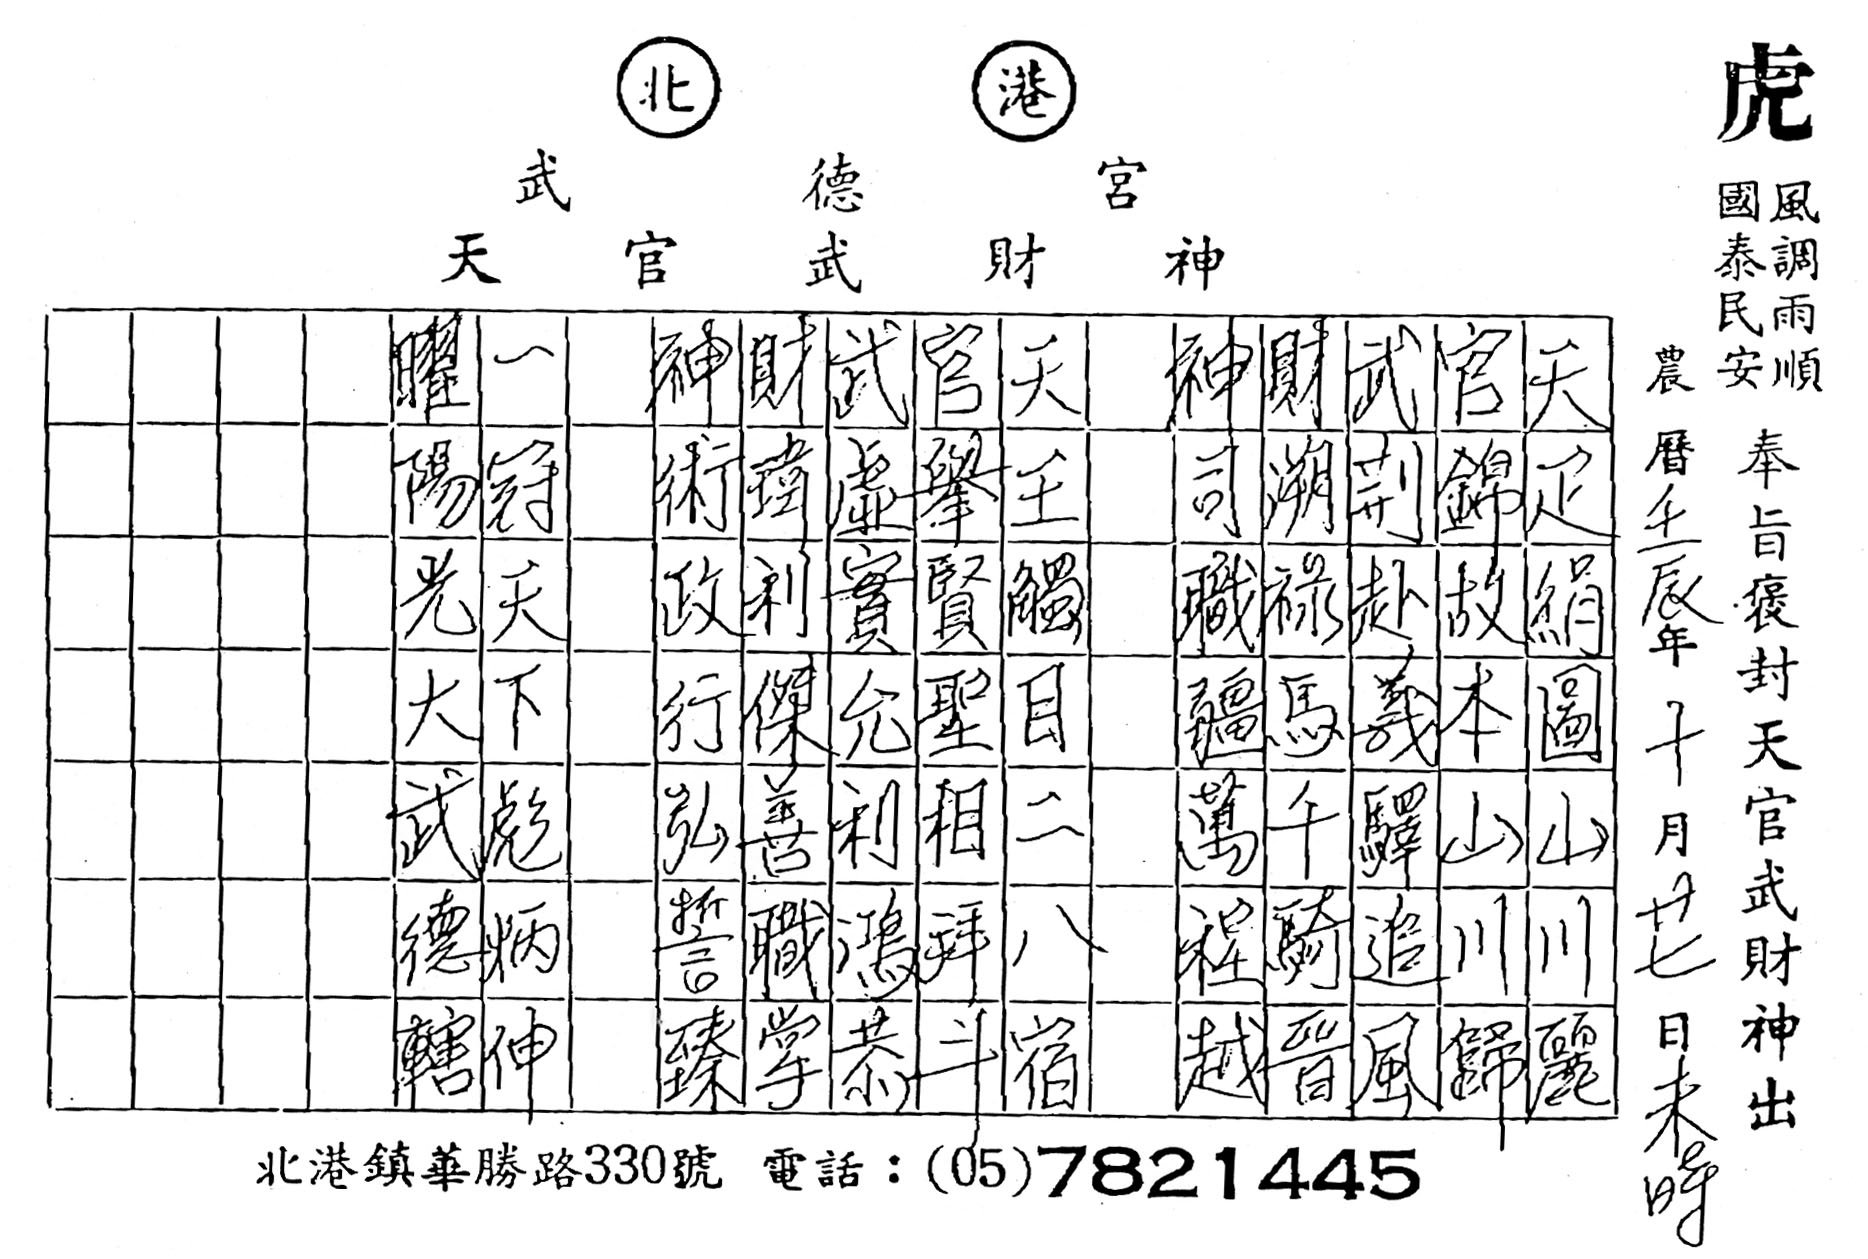 北港
武德宮
天官武財神
虎
風調雨順
國泰民安
奉旨褒封天官武財神出
農曆壬辰年十月廿七日未時
天足絹圖山川麗
官錦故本山川歸
武荆赴義驛追風
財溯祿馬千騎晉
神司職疆萬程越
天王觸目二八宿
官擧賢聖相拜斗
武虛實允利鴻恭
財瑋利傑善職掌
神術政行弘誓臻
一冠天下彪炳伸
曜陽光大武德轄
北港鎮華勝路330號 電話：(05)7821445